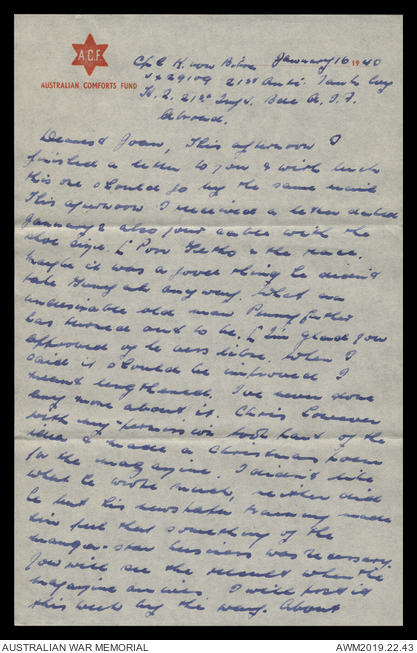 A.C.F.
AUSTRALIAN COMFORTS FUND
Cpl C. H. von Bibra January 16 1940
VX29109 21st Anti. Tank Coy
H.Q. 21st Inf. Bde A.I.F.
Abroad.
Dearest Joan, This afternoon I
finished a letter to you & with luck
this one should go by the same mail
This afternoon I received a letter dated
January 2 also your cable with the
shoe size. [ Poor & the race.
maybe it was a good thing he didn't
take anyway. What an
undesirable old man father
has turned out to be. [ I'm glad you
approved of le vers libre. When I
said it should be improved I
meant lengthened. I've never done
any more about it. Chris however
with my permission took part of the
idea & made a Christmas poem
for the magazine. I didn't like
what he wrote much, neither did
he but his newspaper training made
him feel that something of the
manger-star business was necessary.
You will see the result when the
magazine arrives. I will post it
this week by the way. About
AUSTRALIAN WAR MEMORIAL
AWM2019.22.43